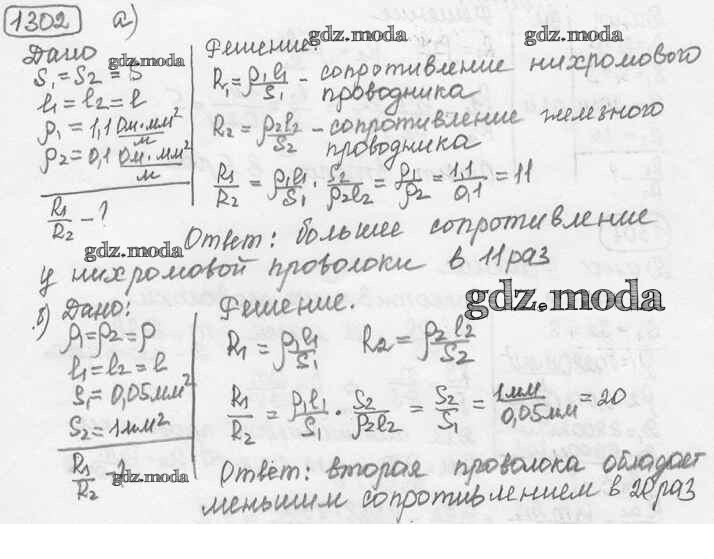 1302 а)
gdz.moda
Дано
S₁ = S₂ = S
l₁ = l₂ = l
ρ₁ = 1,1 Ом·мм²/м
ρ₂ = 0,1 Ом·мм²/м
R₁/R₂ - ?
gdz.moda
Решение:
gdz.moda
R₁ = ρ₁l₁/S₁ - сопротивление нихромового
проводника
gdz.moda
R₂ = ρ₂l₂/S₂ - сопротивление железного
проводника
R₁/R₂ = ρ₁l₁/S₁ · S₂/ρ₂l₂ = ρ₁/ρ₂ = 1,1/0,1 = 11
gdz.moda
Ответ: большее сопротивление
у нихромовой проволоки в 11 раз
б) Дано:
gdz.moda
ρ₁ = ρ₂ = ρ
l₁ = l₂ = l
S₁ = 0,05 мм²
S₂ = 1 мм²
R₁/R₂ - ?
gdz.moda
Решение.
gdz.moda
R₁ = ρ₁l₁/S₁ R₂ = ρ₂l₂/S₂
R₁/R₂ = ρ₁l₁/S₁ · S₂/ρ₂l₂ = S₂/S₁ = 1мм/0,05мм = 20
Ответ: вторая проволока обладает
меньшим сопротивлением в 20 раз
gdz.moda